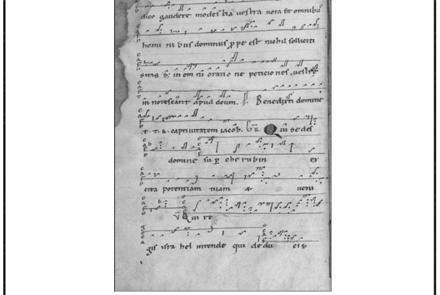 dico gaudete modestia vestra nota sit omnibus
hominibus dominus prope est nihil solliciti
sitis in omni oratione peticiones vestre
innotescant apud deum. Benedixisti domine
t. t. a. captivitatem iacob. Qui sedes
domine sup cherubin ex
cita potentiam tuam & veni
Qui re
gis israhel intende qui deducis